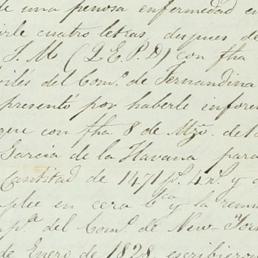 de una penosa enfermedad en
cuatro letras, despues de
S. M (Q.E.P.D) con fha
del Com.º de Fernandina
presentó por haberle inform
con fha 8 de Mzo. del
Garcia de la Havana para
cantidad de 1471 p.s 4 r.s y
en cera b.ca y la rem
del Com.º de New-York
de Enero de 1828 escribieron